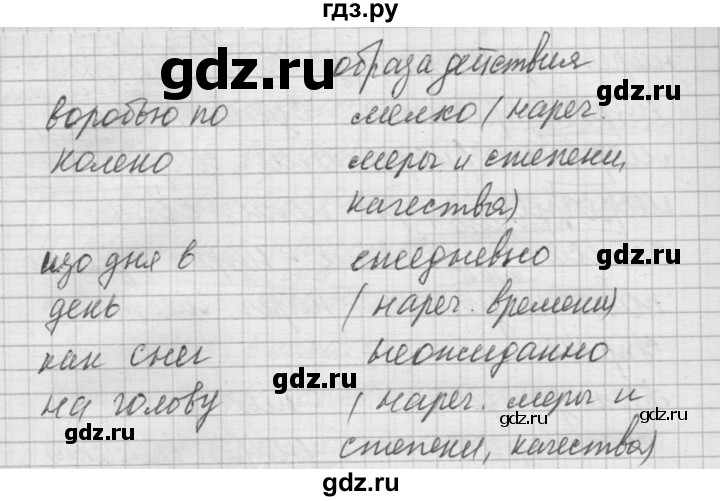 гдз.ру
gdz.ru образа действия
воробью по мелко (нареч. gdz.ru
колено меры и степени,
gdz.ru качества)
изо дня в ежедневно gdz.ru
день (нареч. времени)
как снег неожиданно
gdz.ru
на голову (нареч. меры и
gdz.ru
gdz.ru степени, качества)
gdz.ru